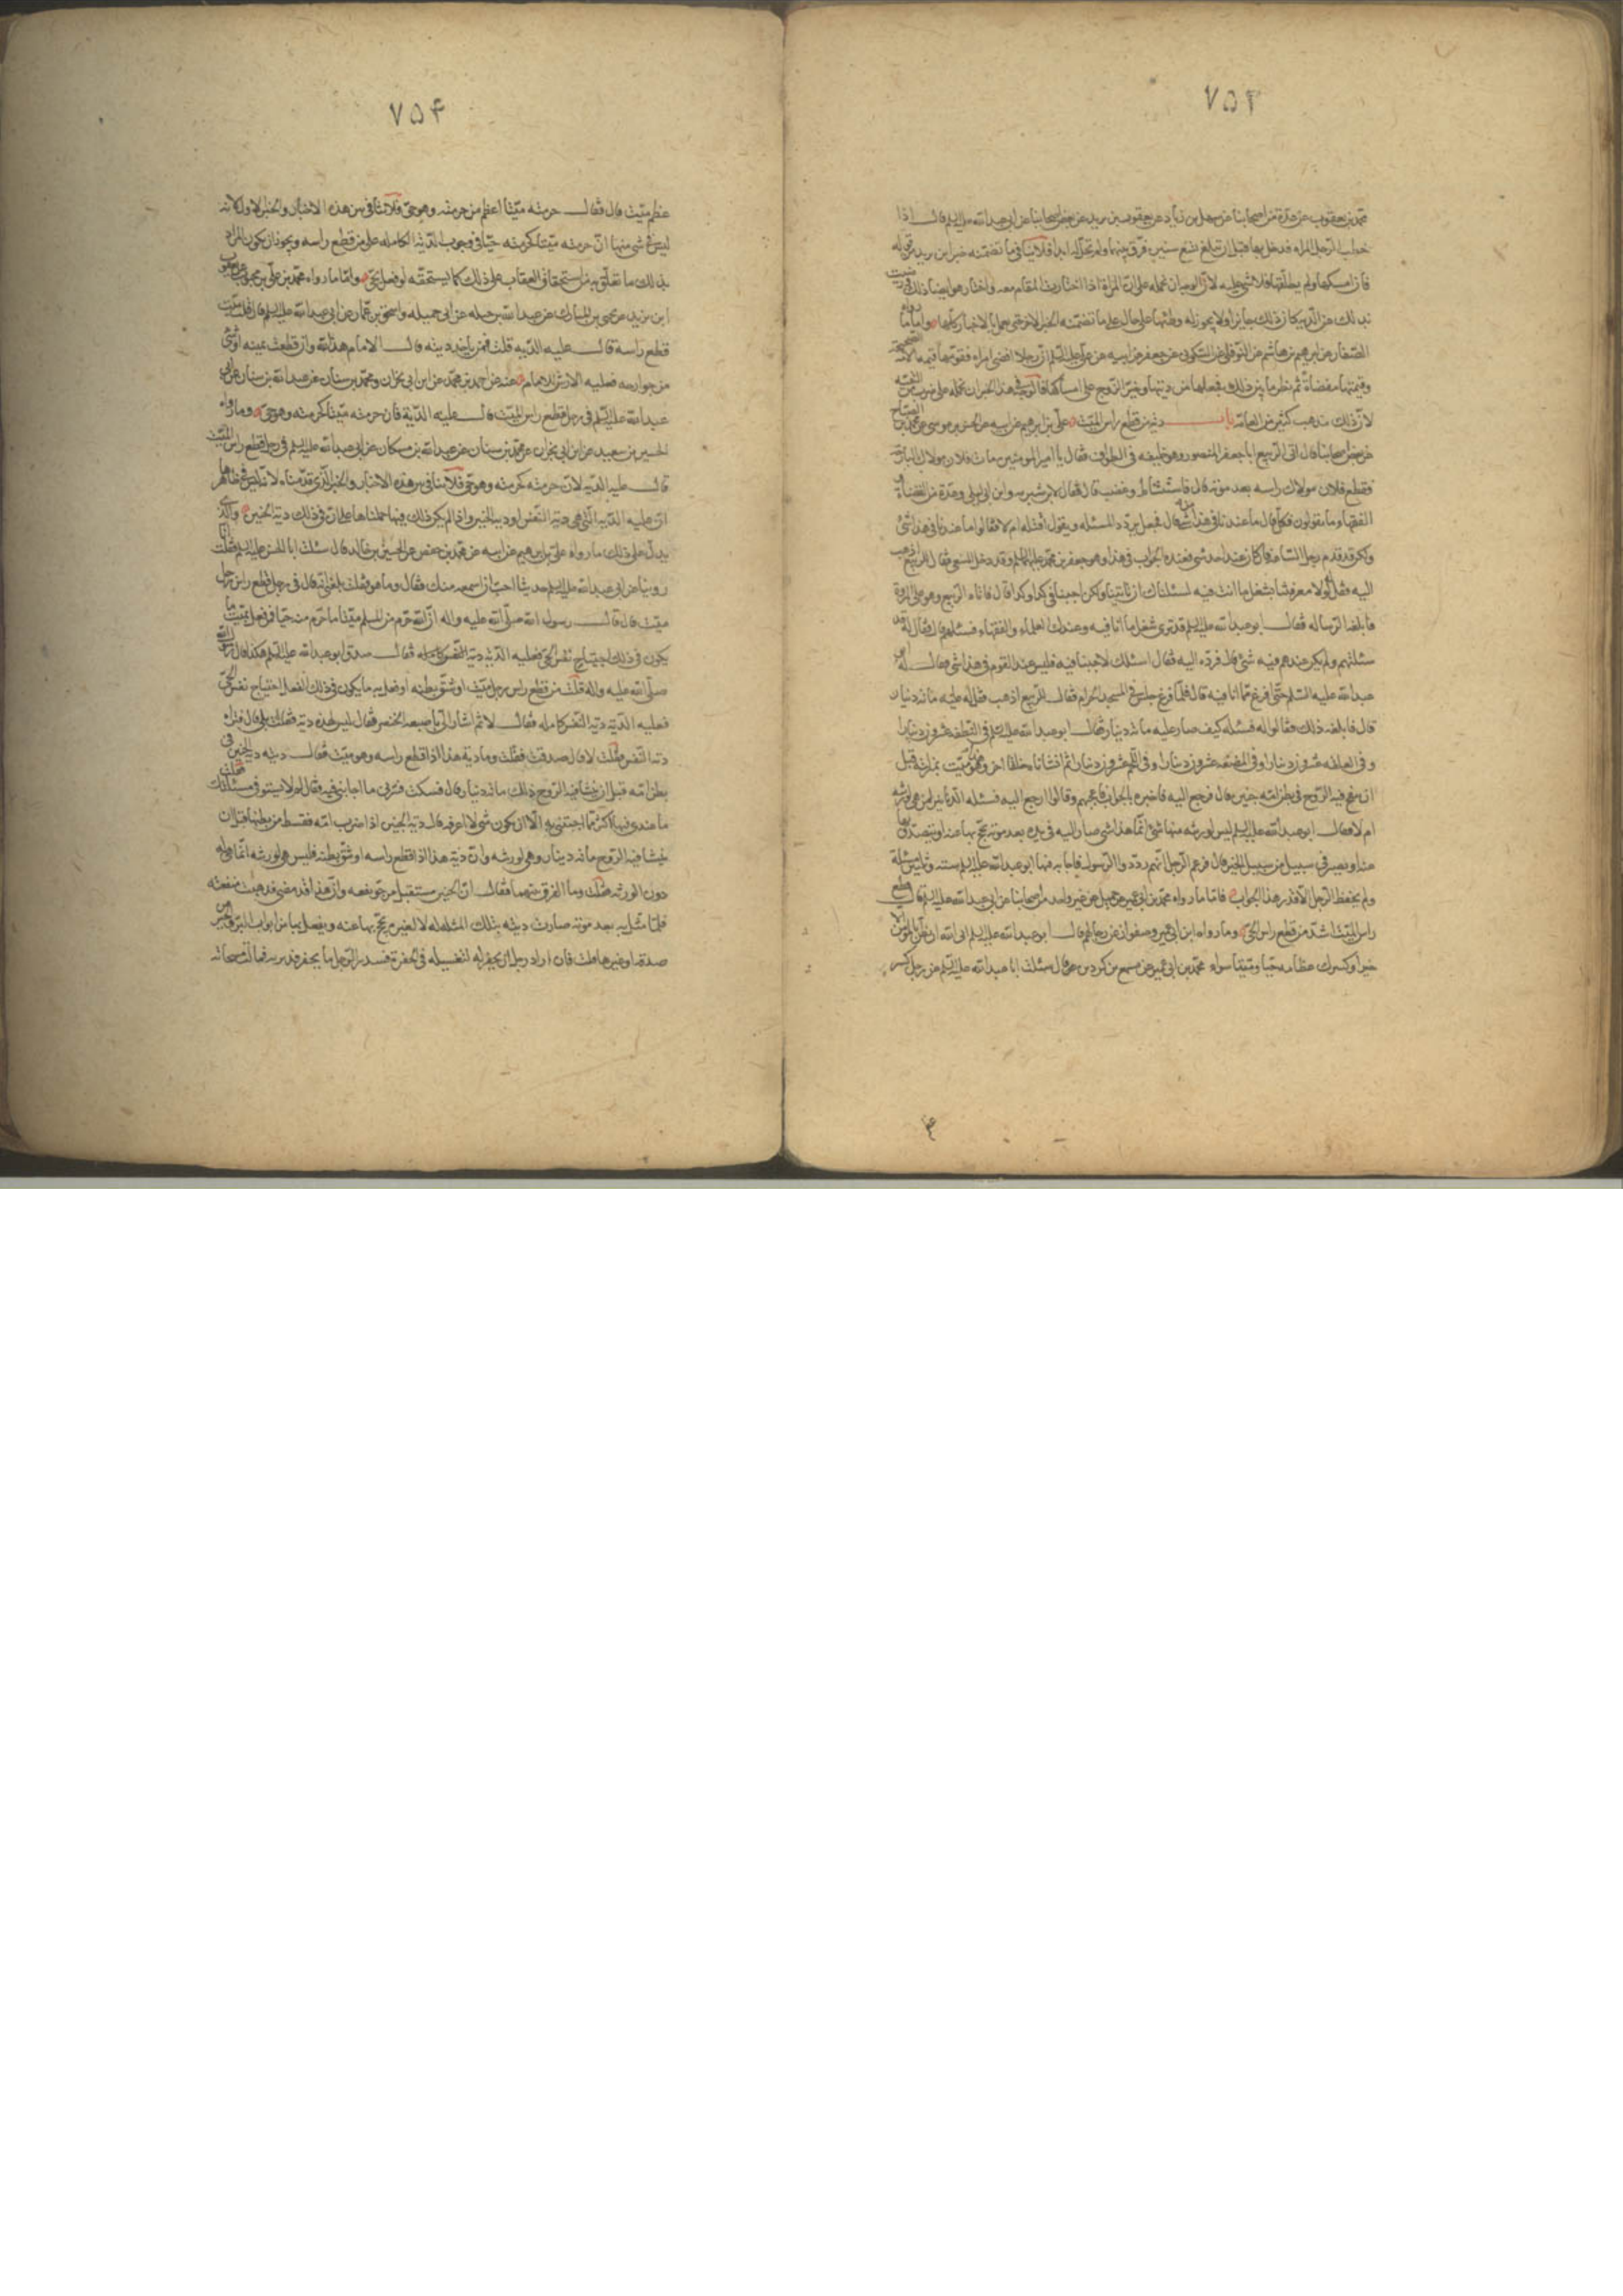 ٧٥٣
محمد بن يعقوب عن عدة من اصحابنا عن سهل بن زياد عن يعقوب بن يزيد عن بعض اصحابنا عن ابى عبد الله عليه السلم قال اذا
خطب الرجل المراه فدخل بها قبل ان تبلغ تسع سنين فرق بينهما ولم تحل له ابدا فلا ينافى ما تضمنه خبر ابن بريد من قوله
فان امسكها ولم يطلقها فلا شى عليه لان الوجه ان نحمله على ان المراة اذا اختارت المقام معه واختار هو ايضا ذلك ورضيت
بذلك عن الديه كان ذلك جايزا ولا يجوز له وطئها على حال على ما تضمنه الخبر الاول حتى نعمل بالاخبار كلها واما ما رواه
الصفار عن ابرهيم بن هاشم عن النوفلى عن السكونى عن جعفر عن ابيه عن على عليه السلم ان رجلا افضى امراه فقومها قيمة الامة الصحيحة
وقيمتها مفضاة ثم نظر ما بين ذلك فجعلها من ديتها وجبر الزوج على امساكها فالوجه فى هذا الخبر ان نحمله على ضرب من التقيه
لان ذلك مذهب كثير من العامة باب دية من قطع راس الميت على بن ابرهيم عن ابيه عن الحسن بن موسى عن محمد بن الصباح
عن بعض اصحابنا قال اتى الربيع ابا جعفر المنصور وهو خليفه فى الطواف فقال يا امير المومنين مات فلان مولاك البارحة
فقطع فلان مولاك راسه بعد موته قال فاستشاط وغضب قال فقال لابن شبرمه وابن ابى ليلى وعدة من القضاة و
الفقها وما تقولون فى هذا فكل قال ما عندنا فى هذا شى قال فجعل يردد المسئله ويقول اقتله ام لا فقالوا ما عندنا فى هذا شى
ولكن قد قدم رجل الساعه فان كان عند احد شى فعنده الجواب فى هذا وهو جعفر بن محمد عليهما السلم وقد دخل المسعى فقال للربيع اذهب
اليه فقل له لولا معرفتنا بشغل ما انت فيه لسئلناك ان تاتينا ولكن اجبنا فى كذا وكذا قال فاتاه الربيع وهو على المروة
فابلغه الرساله فقال ابو عبد الله عليه السلم قد ترى شغل ما انا فيه وعندك العلماء والفقهاء فسئلهم قال فقال له قد
سئلتهم ولم يكن عندهم فيه شى قال فرده اليه فقال اسئلك لاجبتنا فيه فليس عند القوم فى هذا شى فقال له ابو
عبد الله عليه السلم حتى افرغ مما انا فيه قال فلما فرغ جلس فى المسجد الحرام فقال للربيع اذهب فقل له عليه مائه دينار
قال فابلغه ذلك فقالوا له فسئله كيف صار عليه مائه دينار فقال ابو عبد الله عليه السلم فى النطفه عشرون دينارا
وفى العلقه عشرون دينارا وفى المضغه عشرون دينارا وفى العظم عشرون دينارا وفى اللحم عشرون دينارا ثم انشاناه خلقا اخر وهو ميت بمنزلته قبل
ان ينفخ فيه الروح فى بطن امه جنين قال فرجع اليه فاخبره بالجواب فاعجبهم وقالوا ارجع اليه فسئله الدنانير لمن هى لورثته
ام لا فقال ابو عبد الله عليه السلم ليس لورثته منها شى انما هذا شى صار اليه فى بدنه بعد موته يحج بها عنه او يتصدق بها
عنه او يصير فى سبيل من سبيل الخير قال فزعم الرجل انهم ردوا الرسول فاجابه فيها ابو عبد الله عليه السلم ستة وثلثين مسئلة
ولم يحفظ الرجل الا قدر هذا الجواب فاما ما رواه محمد بن ابى عمير عن جميل عن غير واحد من اصحابنا عن ابى عبد الله عليه السلم قال قطع
راس الميت اشد من قطع راس الحى وما رواه ابن ابى عمير وصفوان عن رجالهم قال ابو عبد الله عليه السلم ابى الله ان يظن بالمومن الا
خيرا وكسرك عظامه حيا وميتا سواء محمد بن ابى عمير عن مسمع بن كردين عن قال سئلت ابا عبد الله عليه السلم عن رجل كسر
٧٥۴
عظم ميت قال فقال حرمته ميتا اعظم من حرمته وهو حى فلا تنافى بين هذه الاخبار والخبر الاول لانه
ليس فى شى منها ان حرمته ميتا كحرمته حيا فى وجوب الدية الكامله على من قطع راسه ويجوز ان يكون المراد
بذلك ما تعلق به من استحقاق العقاب على ذلك كما يستحقه لو فعل بحى واما ما رواه محمد بن على بن محبوب عن يعقوب
ابن يزيد عن يحيى بن المبارك عن عبد الله بن جبله عن ابى جميله واسحق بن عمار عن ابى عبد الله عليه السلم قال قلت ميت
قطع راسه قال عليه الديه قلت فمن ياخذ ديته قال الامام هذا لله وان قطعت يمينه او شى
من جوارحه فعليه الارش للامام عنه عن احمد بن محمد عن ابن ابى نجران ومحمد بن سنان عن عبد الله بن سنان عن ابى
عبد الله عليه السلم فى رجل قطع راس الميت قال عليه الدية فان حرمته ميتا كحرمته وهو حى وما رواه
الحسين بن سعيد عن ابن ابى نجران عن محمد بن سنان عن عبد الله بن مسكان عن ابى عبد الله عليه السلم فى رجل قطع راس الميت
قال عليه الديه لان حرمته كحرمته وهو حى فلا تنافى بين هذه الاخبار والخبر الذى قدمناه لانه ليس فى ظاهرها
ان عليه الديه التى هى دية النفس او دية الجنين واذا لم يكن ذلك فيها حملناها على ان فى ذلك دية الجنين والذى
يدل على ذلك ما رواه على بن ابرهيم عن ابيه عن محمد بن حفص عن الحسين بن خالد قال سئلت ابا الحسن عليه السلم فقلت انا
روينا عن ابى عبد الله عليه السلم حديثا احب ان اسمعه منك فقال وما هو فقلت بلغنى انه قال فى رجل قطع راس رجل
ميت قال قال رسول الله صلى الله عليه واله ان الله حرم من المسلم ميتا ما حرم منه حيا فمن فعل بميت ما
يكون فى ذلك اجتياح نفس الحى فعليه الدية دية النفس كامله فقال صدق ابو عبد الله عليه السلم هكذا قال رسول الله
صلى الله عليه واله قلت من قطع راس رجل ميت او شق بطنه او فعل به ما يكون فى ذلك الفعل اجتياح نفس الحى
فعليه الدية دية النفس كامله فقال لا ثم اشار الى باصبعه الخنصر فقال ليس لهذه دية فقلت بلى قال فتراه
دية النفس فقلت لا قال صدقت فقلت وما دية هذا اذا قطع راسه وهو ميت فقال ديته دية الجنين فى
بطن امه قبل ان ينشا فيه الروح وذلك مائه دينار قال فسكت فسرنى ما اجابنى فيه فقال لم لا تستوفى مسئلتك فقلت
ما عندى فيها اكثر مما اجبتنى به الا ان يكون شى لا اعرفه قال دية الجنين اذا ضرب امه فسقط من بطنها قبل ان
ينشا فيه الروح مائه دينار وهى لورثته وان دية هذا اذا قطع راسه او شق بطنه فليس هى لورثته انما هى له
دون الورثه فقلت وما الفرق بينهما فقال ان الجنين مستقبل مرجو نفعه وان هذا قد مضى فذهبت منفعته
فلما مثل به بعد موته صارت ديته بتلك المثله له لا لغيره يحج بها عنه ويفعل بها من ابواب البر والخير من
صدقه او غيرها قلت فان اراد رجل ان يحفر له ليغسله فى الحفرة فسدر الرجل مما يحفر فدير به فمالت مسحاته
۴